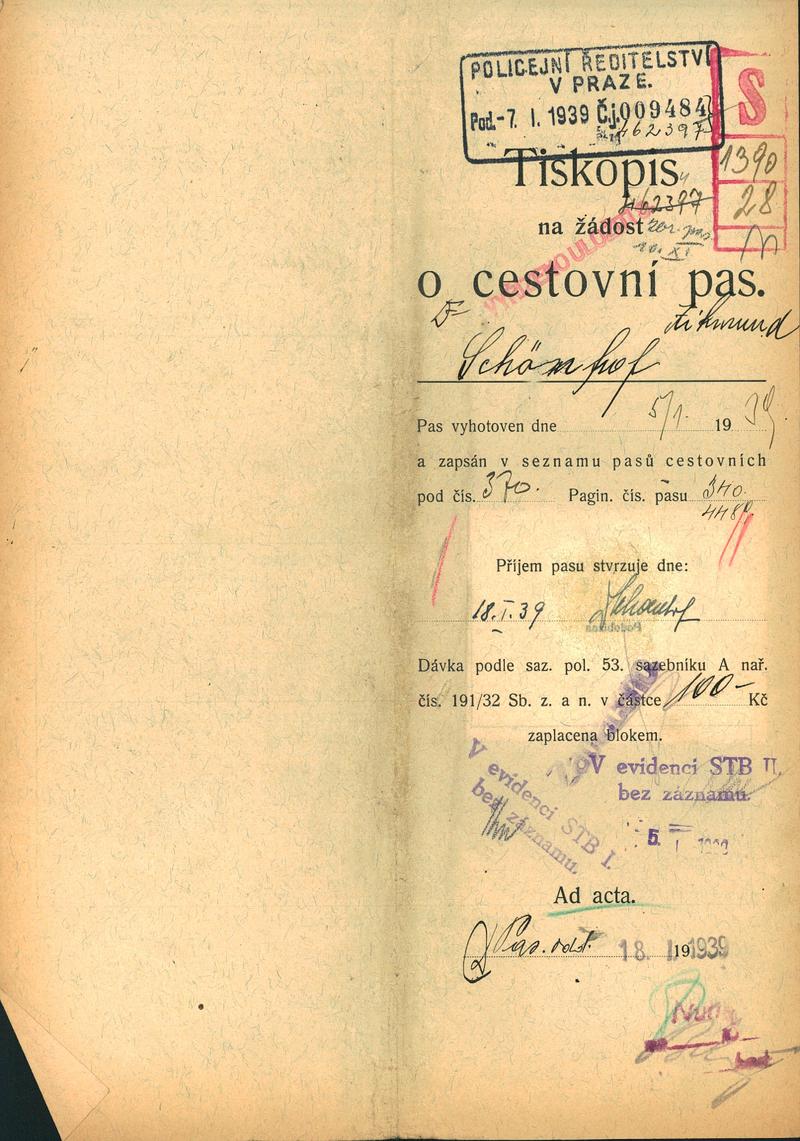 POLICEJNÍ ŘEDITELSTVÍ
V PRAZE.
Pod. -7. I. 1939 Č.j. 009484
462397
S
1390
28
Tiskopis
462397
na žádost
o cestovní pas.
Dr
Zikmund
Schönhof
Pas vyhotoven dne 5/1. 1939
a zapsán v seznamu pasů cestovních
pod čís. 370. Pagin. čís. pasu 340.
4480
Příjem pasu stvrzuje dne:
18.I.39 Schönhof
Podobizna
Dávka podle saz. pol. 53. sazebníku A nař.
čís. 191/32 Sb. z. a n. v částce 100- Kč
zaplacena blokem.
V evidenci STB II.
bez záznamu.
V evidenci STB I.
bez záznamu.
5. I 1939
Ad acta.
Pas. odd. 18. I. 19 1939